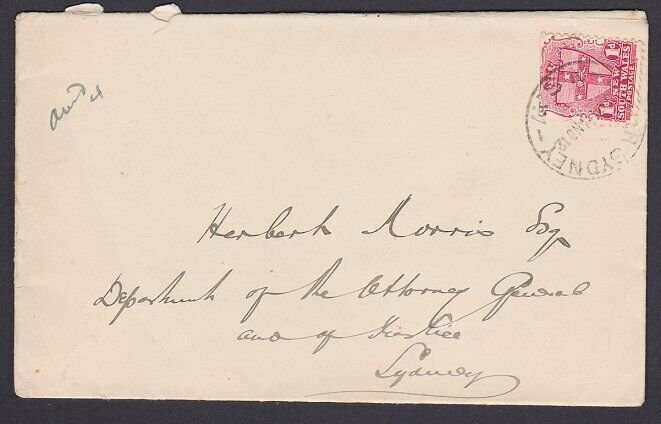 1D NEW 1D
SOUTH WALES
POSTAGE
SYDNEY
Herbert Morris Esq
Department of the Attorney General
and of Justice
Sydney